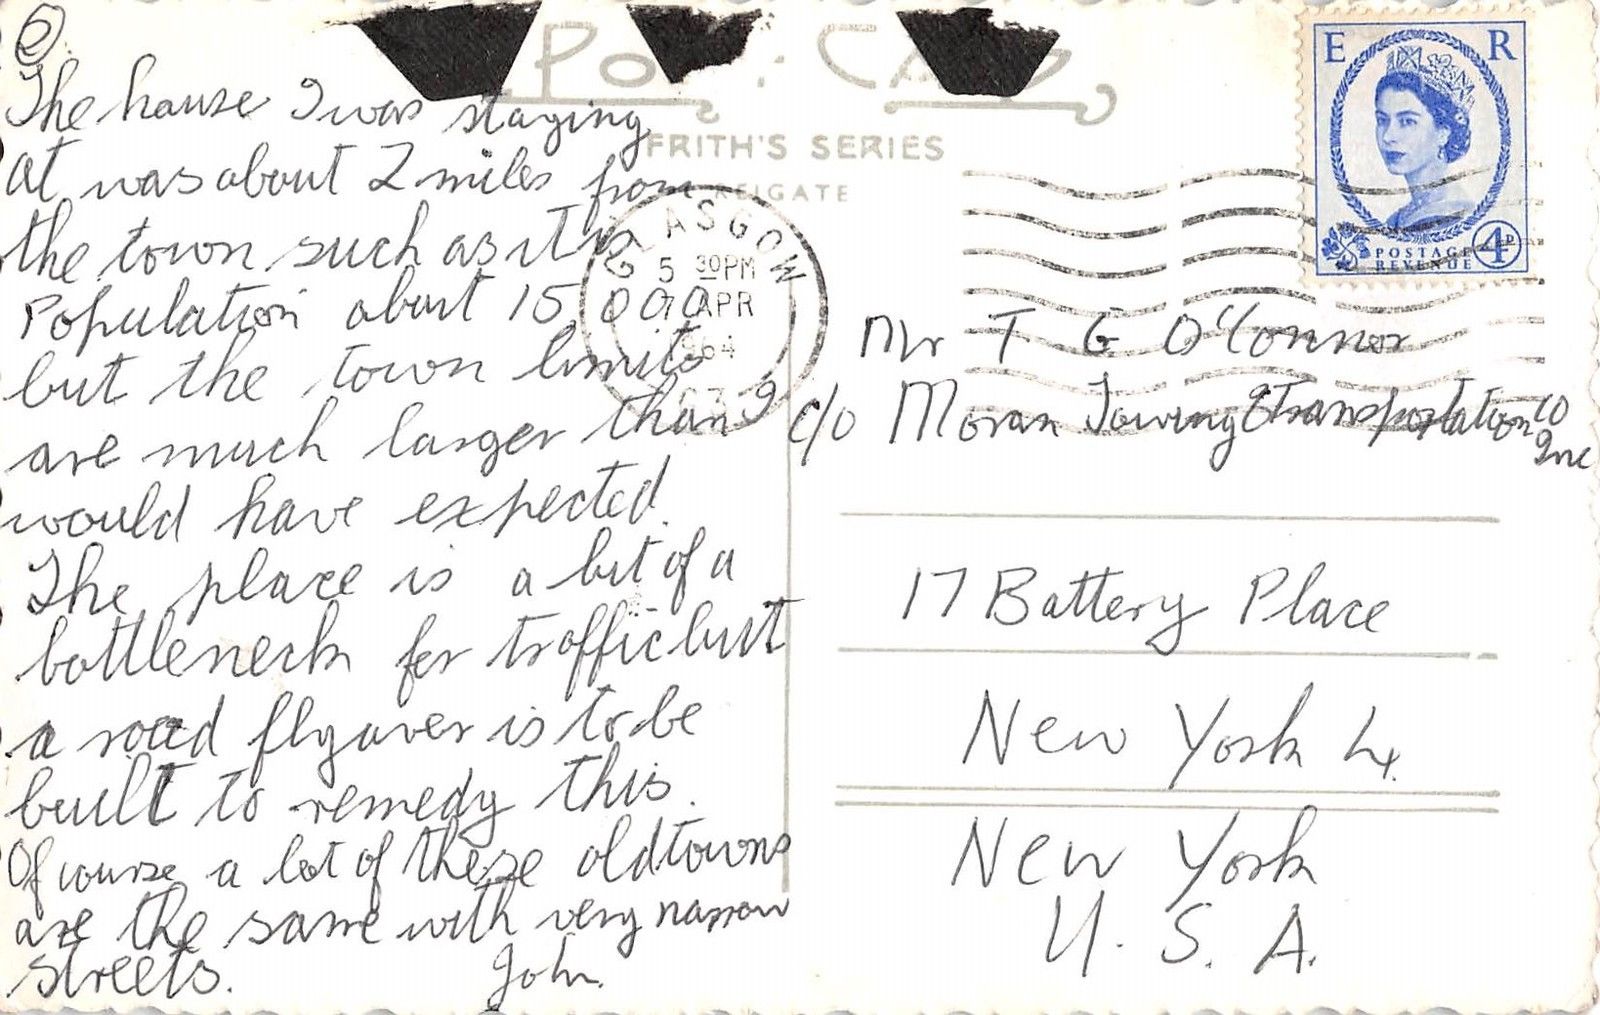 2
The house I was staying
at was about 2 miles from
the town such as it is
Population about 15,000
but the town limits
are much larger than I
would have expected.
The place is a bit of a
bottleneck for traffic but
a road flyover is to be
built to remedy this.
Of course a lot of these old towns
are the same with very narrow
streets. John.
POST CARD
FRITH'S SERIES
REIGATE
GLASGOW
5 30PM
7 APR
1964
E R
POSTAGE
REVENUE
4D
Mr T G O'Connor
c/o Moran Towing & Transportation Co
Inc
17 Battery Place
New York 4.
New York
U. S. A.